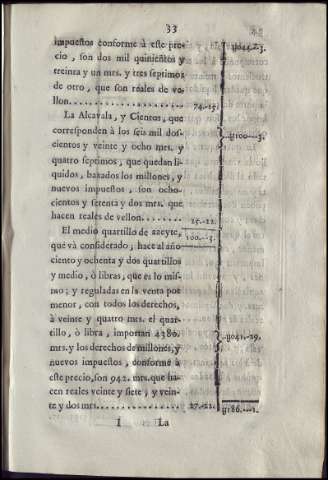 33
impuestos conforme à este pre-
cio, son dos mil quinientos y
treinta y un mrs. y tres septimos
de otro, que son reales de ve-
llon........................ 74.-15.
La Alcavala, y Cientos, que
corresponden à los seis mil dos-
cientos y veinte y ocho mrs. y
quatro septimos, que quedan li-
quidos, baxados los millones, y
nuevos impuestos, son ocho-
cientos y setenta y dos mrs. que
hacen reales de vellon........ 25.-22.
100.--3.
El medio quartillo de azeyte,
que và considerado, hace al año
ciento y ochenta y dos quartillos
y medio, ò libras, que es lo mis-
mo; y reguladas en la venta por
menor, con todos los derechos,
à veinte y quatro mrs. el quar-
tillo, ò libra, importan 4380.
mrs. y los derechos de millones, y
nuevos impuestos, conforme à
este precio, son 942. mrs. que ha-
cen reales veinte y siete, y vein-
te y dos mrs................ 27.-22.
y100.--3.
y041.-29.
y186.--1.
I La